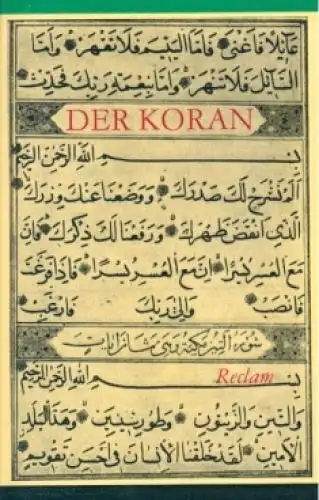 عَآئِلًا فَاَغْنٰى فَاَمَّا الْيَتِيمَ فَلَا تَقْهَرْ وَاَمَّا
السَّآئِلَ فَلَا تَنْهَرْ وَاَمَّا بِنِعْمَةِ رَبِّكَ فَحَدِّثْ
DER KORAN
بِسْمِ اللّٰهِ الرَّحْمٰنِ الرَّحِيمِ
اَلَمْ نَشْرَحْ لَكَ صَدْرَكَ وَوَضَعْنَا عَنْكَ وِزْرَكَ
الَّذِي اَنْقَضَ ظَهْرَكَ وَرَفَعْنَا لَكَ ذِكْرَكَ فَاِنَّ
مَعَ الْعُسْرِ يُسْرًا اِنَّ مَعَ الْعُسْرِ يُسْرًا فَاِذَا فَرَغْتَ
فَانْصَبْ وَاِلٰى رَبِّكَ فَارْغَبْ
سورة التين مكية وهى ثمان ايات
بِسْمِ اللّٰهِ الرَّحْمٰنِ الرَّحِيمِ
Reclam
وَالتِّينِ وَالزَّيْتُونِ وَطُورِ سِينِينَ وَهٰذَا الْبَلَدِ
الْاَمِينِ لَقَدْ خَلَقْنَا الْاِنْسَانَ فِي اَحْسَنِ تَقْوِيمٍ